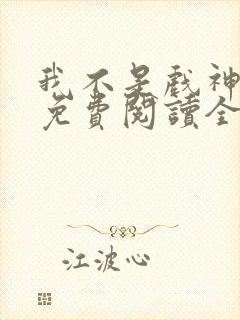 我不是戲神
免費閱讀全
江波心